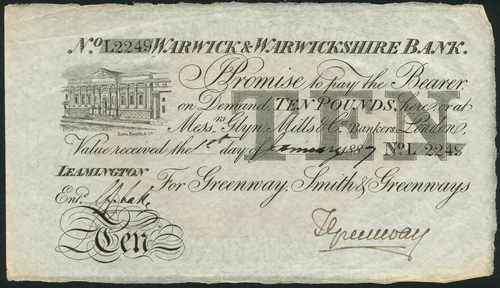 No L2249 WARWICK & WARWICKSHIRE BANK.
I Promise to pay the Bearer,
on Demand, TEN POUNDS, here, or at
Messrs Glyn, Mills & Co Bankers London,
Value received the 1st day of January 1887 No L 2249
TEN
LEAMINGTON For Greenway, Smith & Greenways
Entd
Ten
Greenway